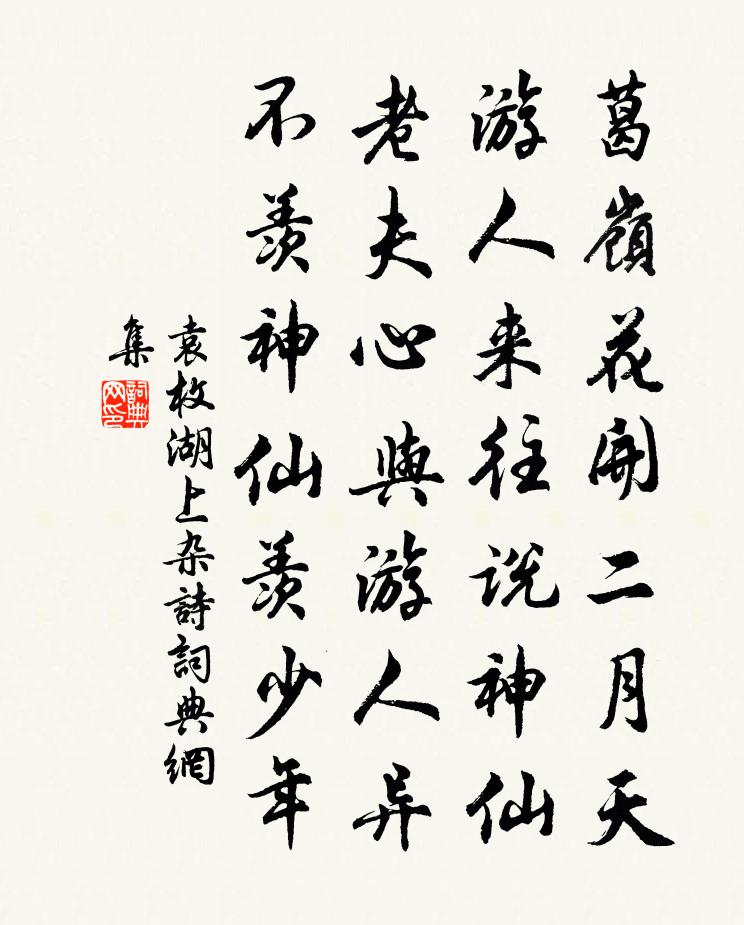 葛嶺花開二月天
游人来往説神仙
老夫心與游人异
不羨神仙羨少年
袁枚湖上杂詩詞典網
集
詞典
网印